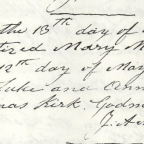 the 13th day of
tized Mary M
12th day of May
Luke and Ann
as Kirk Godm
J. A